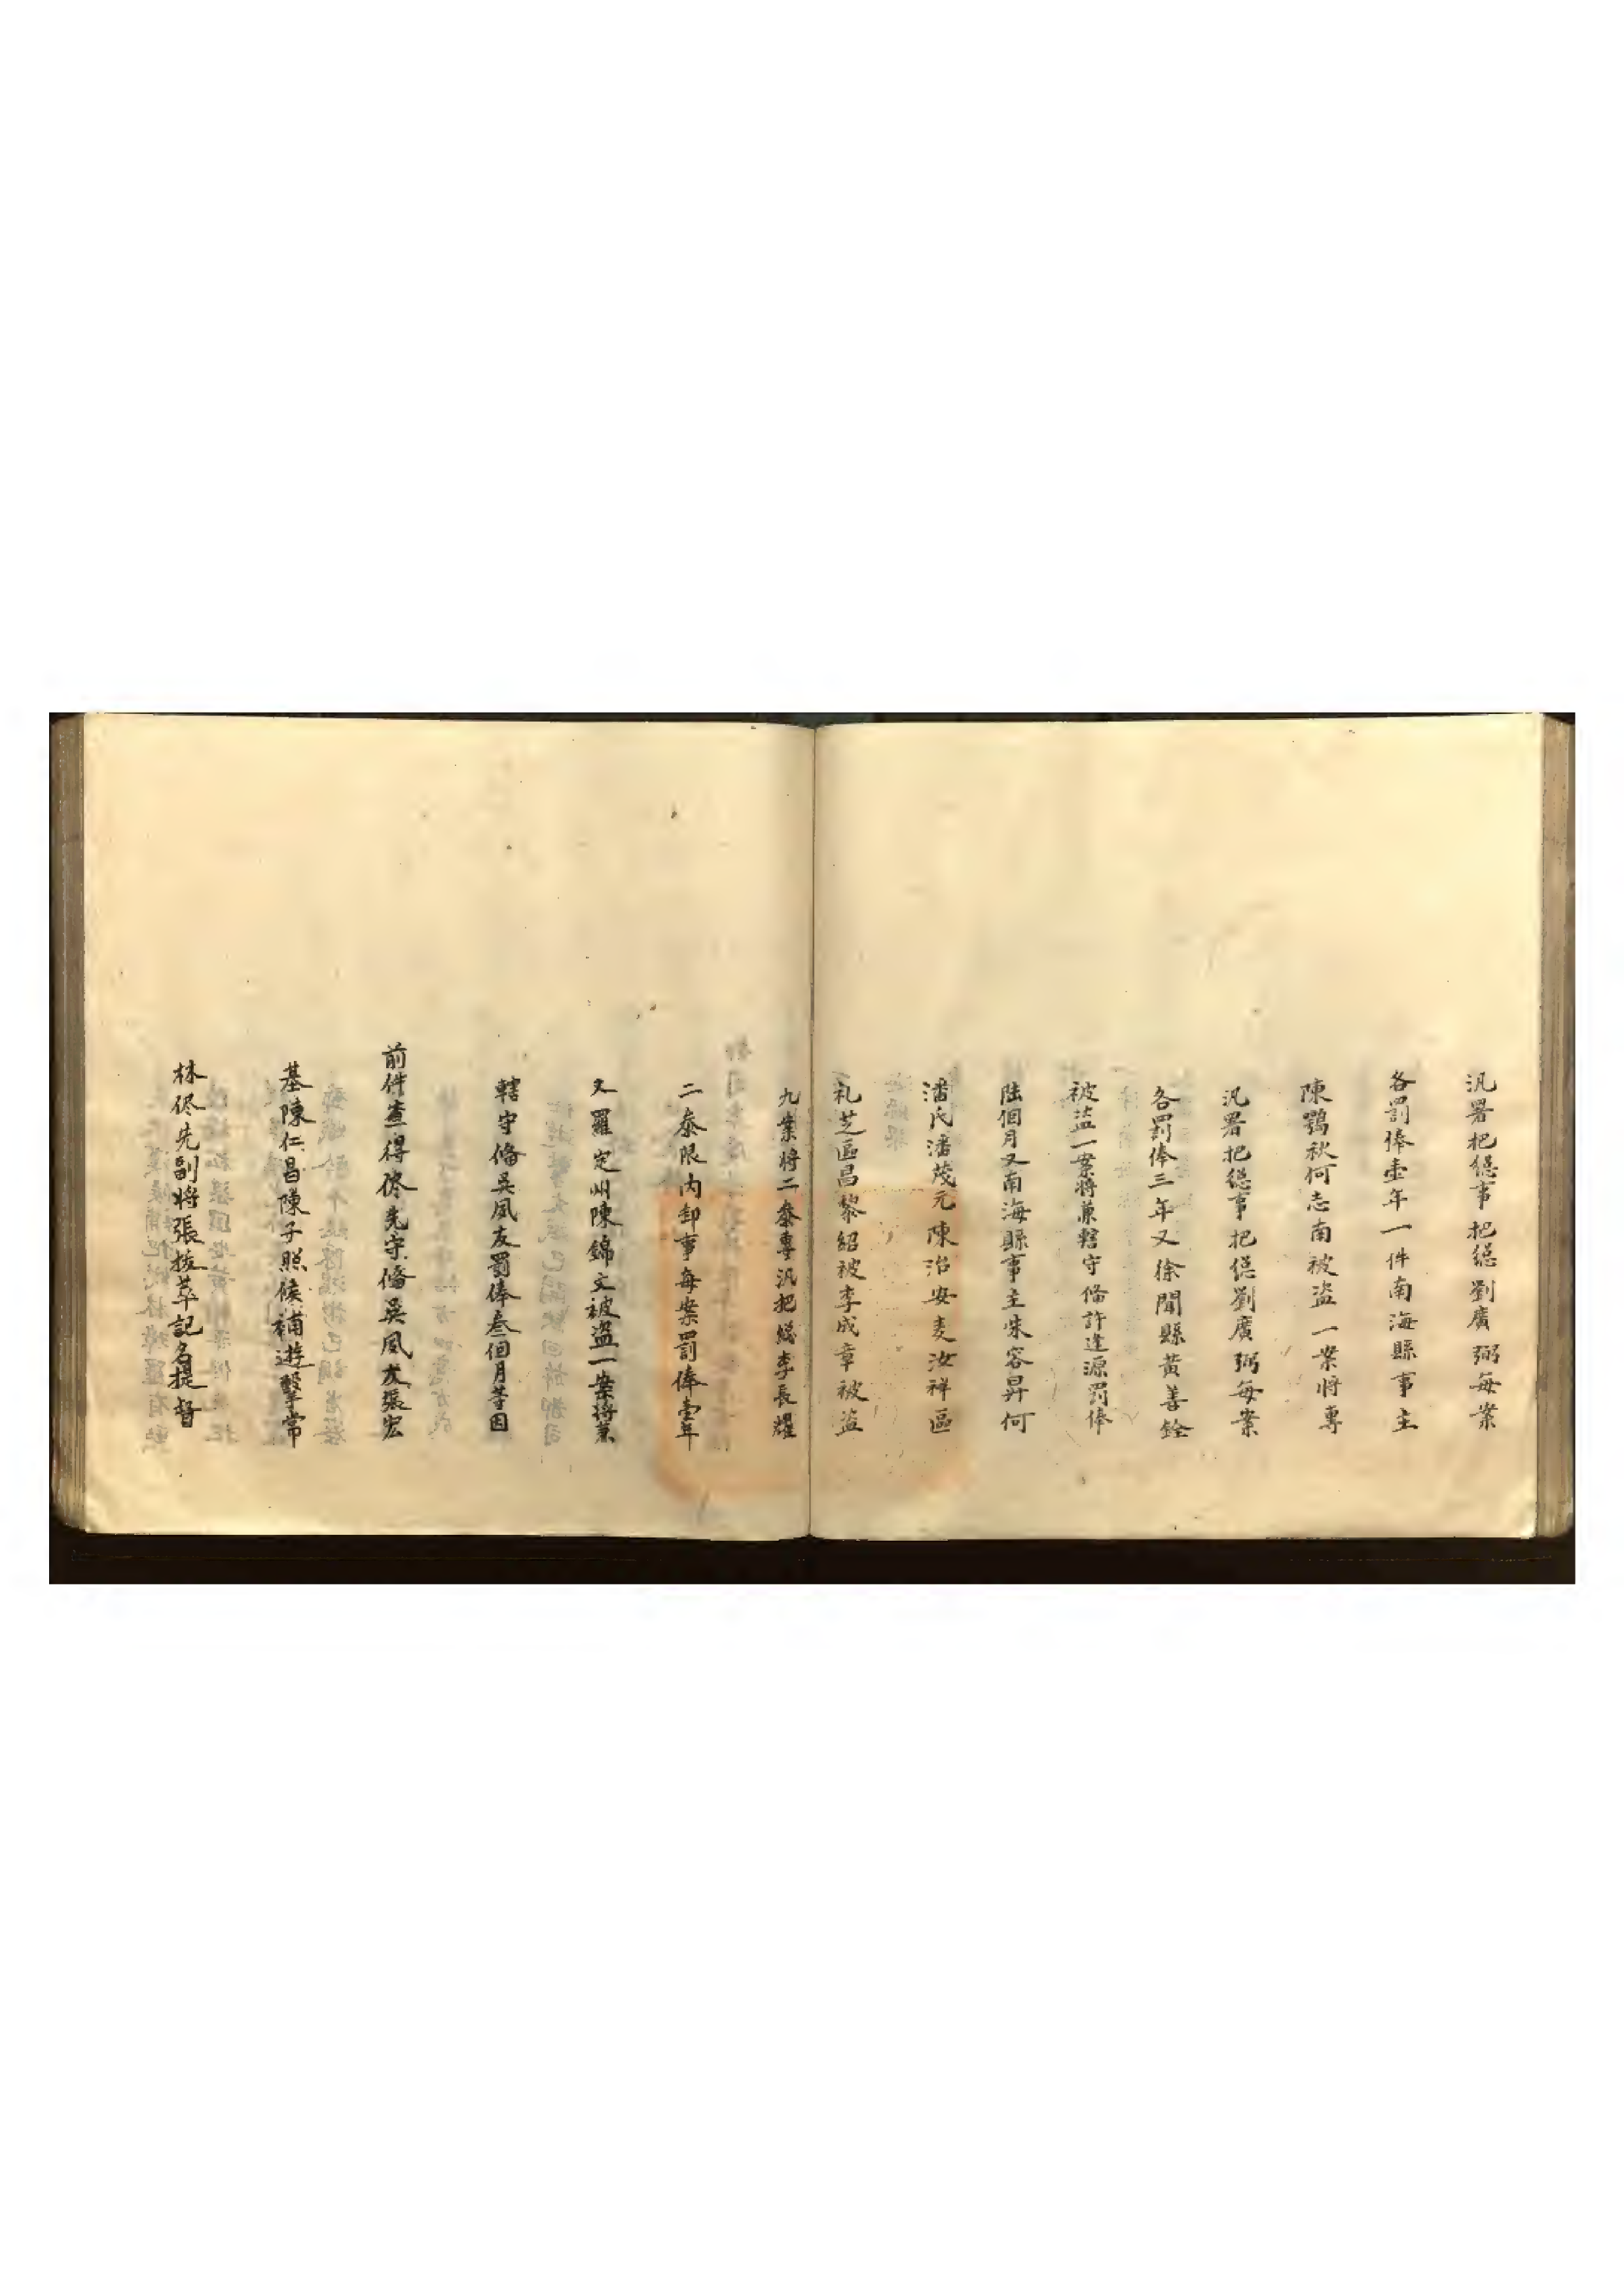 汛署把總事把總劉廣弼每案
各罰俸壹年一件南海縣事主
陳鶚秋何志南被盜一案將專
汛署把總事把總劉廣弼每案
各罰俸三年又徐聞縣黃善銓
被盜一案將兼轄守俻許逢源罰俸
陸個月又南海縣事主朱容昇何
潘氏潘茂元陳治安麦汝祥區
礼芝區昌黎紹被李成章被盜
九案將二叅專汛把總李長耀
二叅限內卸事每案罰俸壹年
又羅定州陳錦文被盜一案將兼
轄守俻吳凤友罰俸叁個月等因
前件查得侭先守俻吳凤友張宏
基陳仁昌陳子熙候補遊擊常
林侭先副將張拔萃記名提督